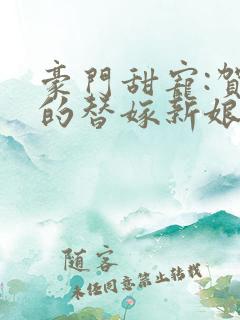 豪門甜寵:賀
的替嫁新娘
随客
未经同意禁止转载